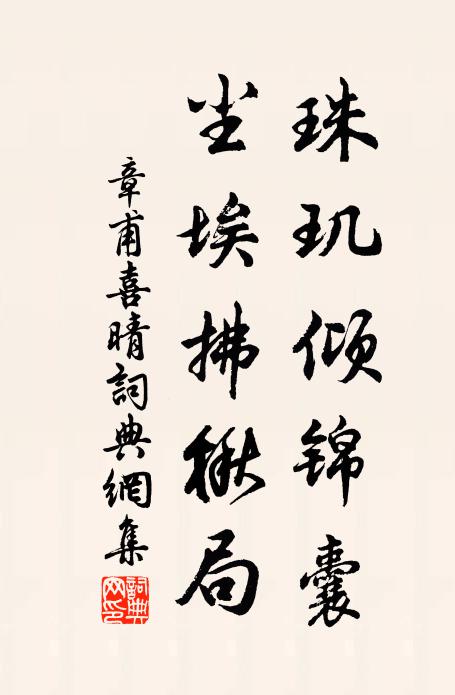 珠玑倾锦囊
尘埃拂楸局
章甫喜晴詞典網集
詞典网印